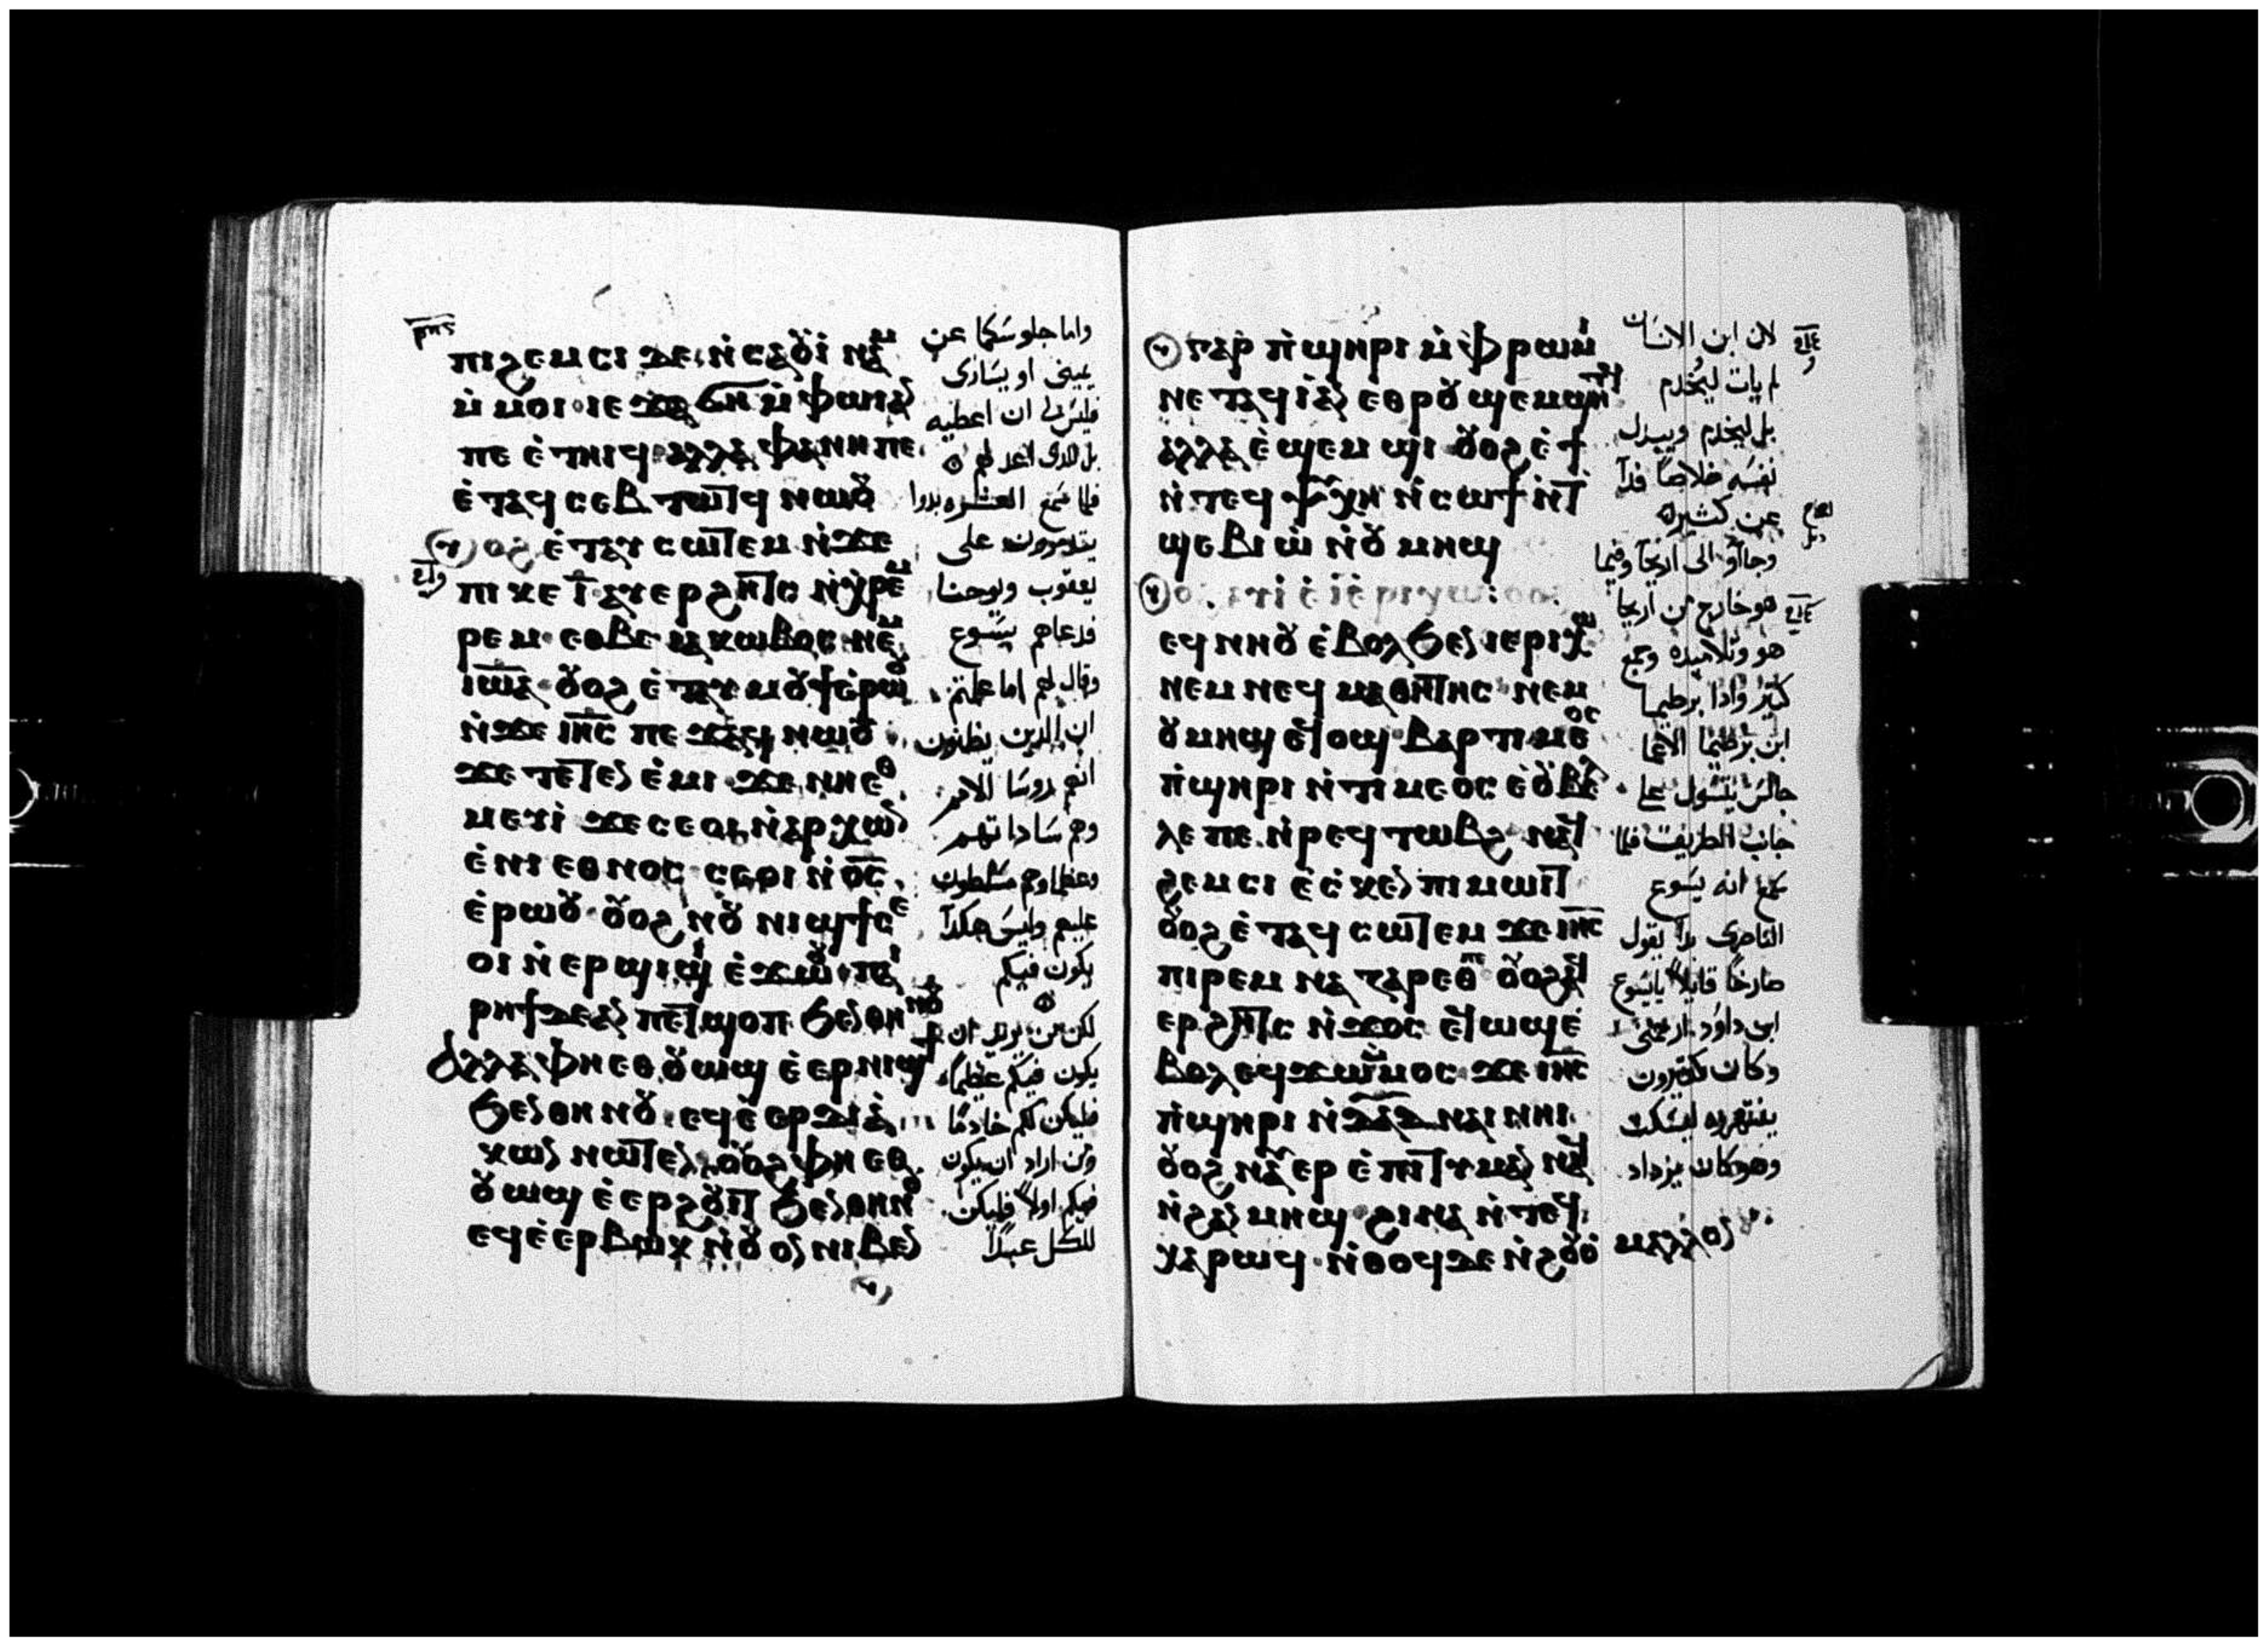 ⲣⲙⲋ
ⲡⲓϩⲉⲙⲥⲓ ⲇⲉ ⲛ̀ⲥⲁȣⲓ̀ ⲛⲁⲙ
ⲙ̀ⲙⲟⲓ ⲓⲉ ϫⲁϭⲏ ⲙ̀ⲫⲱⲓ ⲁⲛ
ⲡⲉ ⲉ̀ⲧⲏⲓϥ ⲁⲗⲗⲁ ⲫⲁ ⲛⲏ ⲡⲉ
ⲉ̀ⲧⲁϥⲥⲉⲃⲧⲱⲧϥ ⲛⲱȣ
ⲟϩ ⲉ̀ⲧⲁⲩⲥⲱⲧⲉⲙ ⲛ̀ϫⲉ
ⲡⲓⲕⲉⲓ̅ ⲁⲩⲉⲣϩⲏⲧⲥ ⲛ̀ⲭⲣⲉⲙ
ⲣⲉⲙ ⲉⲑⲃⲉ ⲓⲁⲕⲱⲃⲟⲥ ⲛⲉⲙ
ⲓⲱ̅ⲁ̅ ȣⲟϩ ⲉ̀ⲧⲁⲩⲙȣϯ ⲉ̀ⲣⲱȣ
ⲛ̀ϫⲉ ⲓⲏ̅ⲥ̅ ⲡⲉϫⲁϥ ⲛⲱȣ
ϫⲉ ⲧⲉⲧⲉⲛ ⲉ̀ⲙⲓ ϫⲉ ⲛⲏⲉⲑ
ⲙⲉⲩⲓ̀ ϫⲉ ⲥⲉⲟⲓ ⲛ̀ⲁⲣⲭⲱⲛ
ⲉ̀ⲛⲓⲉⲑⲛⲟⲥ ⲥⲉⲟⲓ ⲛ̀ⲟ̅ⲥ̅
ⲉ̀ⲣⲱȣ ȣⲟϩ ⲛȣ ⲛⲓϣϯ ⲥⲉ
ⲟⲓ ⲛ̀ⲉⲣϣⲓϣⲓ ⲉ̀ϫⲱȣ ⲡⲁⲓ
ⲣⲏϯ ⲇⲉ ⲁⲛ ⲡⲉⲧϣⲟⲡ ϧⲉⲛ ⲑⲏⲛȣ
ⲁⲗⲗⲁ ⲫⲏ ⲉⲑȣⲱϣ ⲉ̀ⲉⲣⲛⲓϣϯ
ϧⲉⲛ ⲑⲏⲛȣ ⲉϥⲉ̀ⲉⲣⲇⲓⲁ̀
ⲕⲱⲛ ⲛⲱⲧⲉⲛ ȣⲟϩ ⲫⲏ ⲉⲑ
ȣⲱϣ ⲉ̀ⲉⲣϩȣⲓⲧ ϧⲉⲛ ⲑⲏⲛȣ
ⲉϥⲉ̀ⲉⲣⲃⲱⲕ ⲛ̀ȣⲟⲛ ⲛⲓⲃⲉⲛ
واما جلوسكما عن
يميني او يساري
فليس لي ان اعطيه
بل للذي اعد لهم
فلما سمع العشره بدوا
يتذمرون على
يعقوب ويوحنا
فدعاهم يسوع
وقال لهم اما علمتم
ان الذين يظنون
انهم روسا الامم
وهم ساداتهم
وعظماوهم مسلطون
عليهم وليس هكذا
يكون فيكم
لكن من يريد ان
يكون فيكم عظيما
فليكن لكم خادما
ومن اراد ان يكون
فيكم اولا فليكن
للكل عبدا
ⲅⲁⲣ ⲡ̀ϣⲏⲣⲓ ⲙ̀ⲫⲣⲱⲙⲓ
ⲛⲉⲧⲁϥⲓ̀ ⲁⲛ ⲉⲑⲣȣϣⲉⲙϣⲏⲧϥ
ⲁⲗⲗⲁ ⲉ̀ϣⲉⲙϣⲓ ȣⲟϩ ⲉ̀ϯ
ⲛ̀ⲧⲉϥⲯⲩⲭⲏ ⲛ̀ⲥⲱϯ ⲛ̀ⲧ
ϣⲉⲃⲓⲱ̀ ⲛ̀ȣⲙⲏϣ
ⲉϥⲛⲏȣ ⲉ̀ⲃⲟⲗ ϧⲉⲛ ⲓⲉⲣⲓⲭⲱ
ⲛⲉⲙ ⲛⲉϥⲙⲁⲑⲏⲧⲏⲥ ⲛⲉⲙ
ȣⲙⲏϣ ⲉϥⲟϣ ⲃⲁⲣⲧⲓⲙⲉⲟⲥ
ⲡ̀ϣⲏⲣⲓ ⲛ̀ⲧⲓⲙⲉⲟⲥ ⲉ̀ȣⲃⲉⲗ
ⲗⲉ ⲡⲉ ⲛ̀ⲣⲉϥⲧⲱⲃϩ ⲛⲁϥ
ϩⲉⲙⲥⲓ ⲉ̀ⲥ̀ⲕⲉⲛ ⲡⲓⲙⲱⲓⲧ
ȣⲟϩ ⲉ̀ⲧⲁϥⲥⲱⲧⲉⲙ ϫⲉ ⲓⲏ̅ⲥ̅
ⲡⲓⲣⲉⲙⲛⲁⲍⲁⲣⲉⲑ ⲡⲉ ȣⲟϩ ⲁϥ
ⲉⲣϩⲏⲧⲥ ⲛ̀ϫⲟⲥ ⲉϥⲱϣ ⲉ̀
ⲃⲟⲗ ⲉϥϫⲱ ⲙ̀ⲙⲟⲥ ϫⲉ ⲓⲏ̅ⲥ̅
ⲡ̀ϣⲏⲣⲓ ⲛ̀ⲇⲁ̅ⲇ̅ ⲛⲁⲓ ⲛⲏⲓ
ȣⲟϩ ⲛⲁⲩⲉⲣⲉ̀ⲡⲓⲧⲓⲙⲁⲛ ⲛⲁϥ
ⲛ̀ϩⲁⲛⲙⲏϣ ϩⲓⲛⲁ ⲛ̀ⲧⲉϥ
ⲭⲁⲣⲱϥ ⲛ̀ⲑⲟϥ ⲇⲉ ⲛ̀ϩȣⲟ̀ ⲙⲁⲗⲗⲟⲛ
لان ابن الانسان
لم يات ليُخدم
بل ليخدم ويبذل
نفسه خلاصا فدآ
عن كثيره
وجاآو الى اريحآ وفيما
هو خارج من اريحا
هو وتلاميذه وجمع
كثير واذا برطيما
ابن برطيما الاعما
جالس يتسول على
جانب الطريق فلما
سمع انه يسوع
الناصرى بدآ يقول
صارخا قايلا يايسوع
ابن داود ارحمنى
وكان كثيرون
ينتهروه ليسكت
وهو كان يزداد